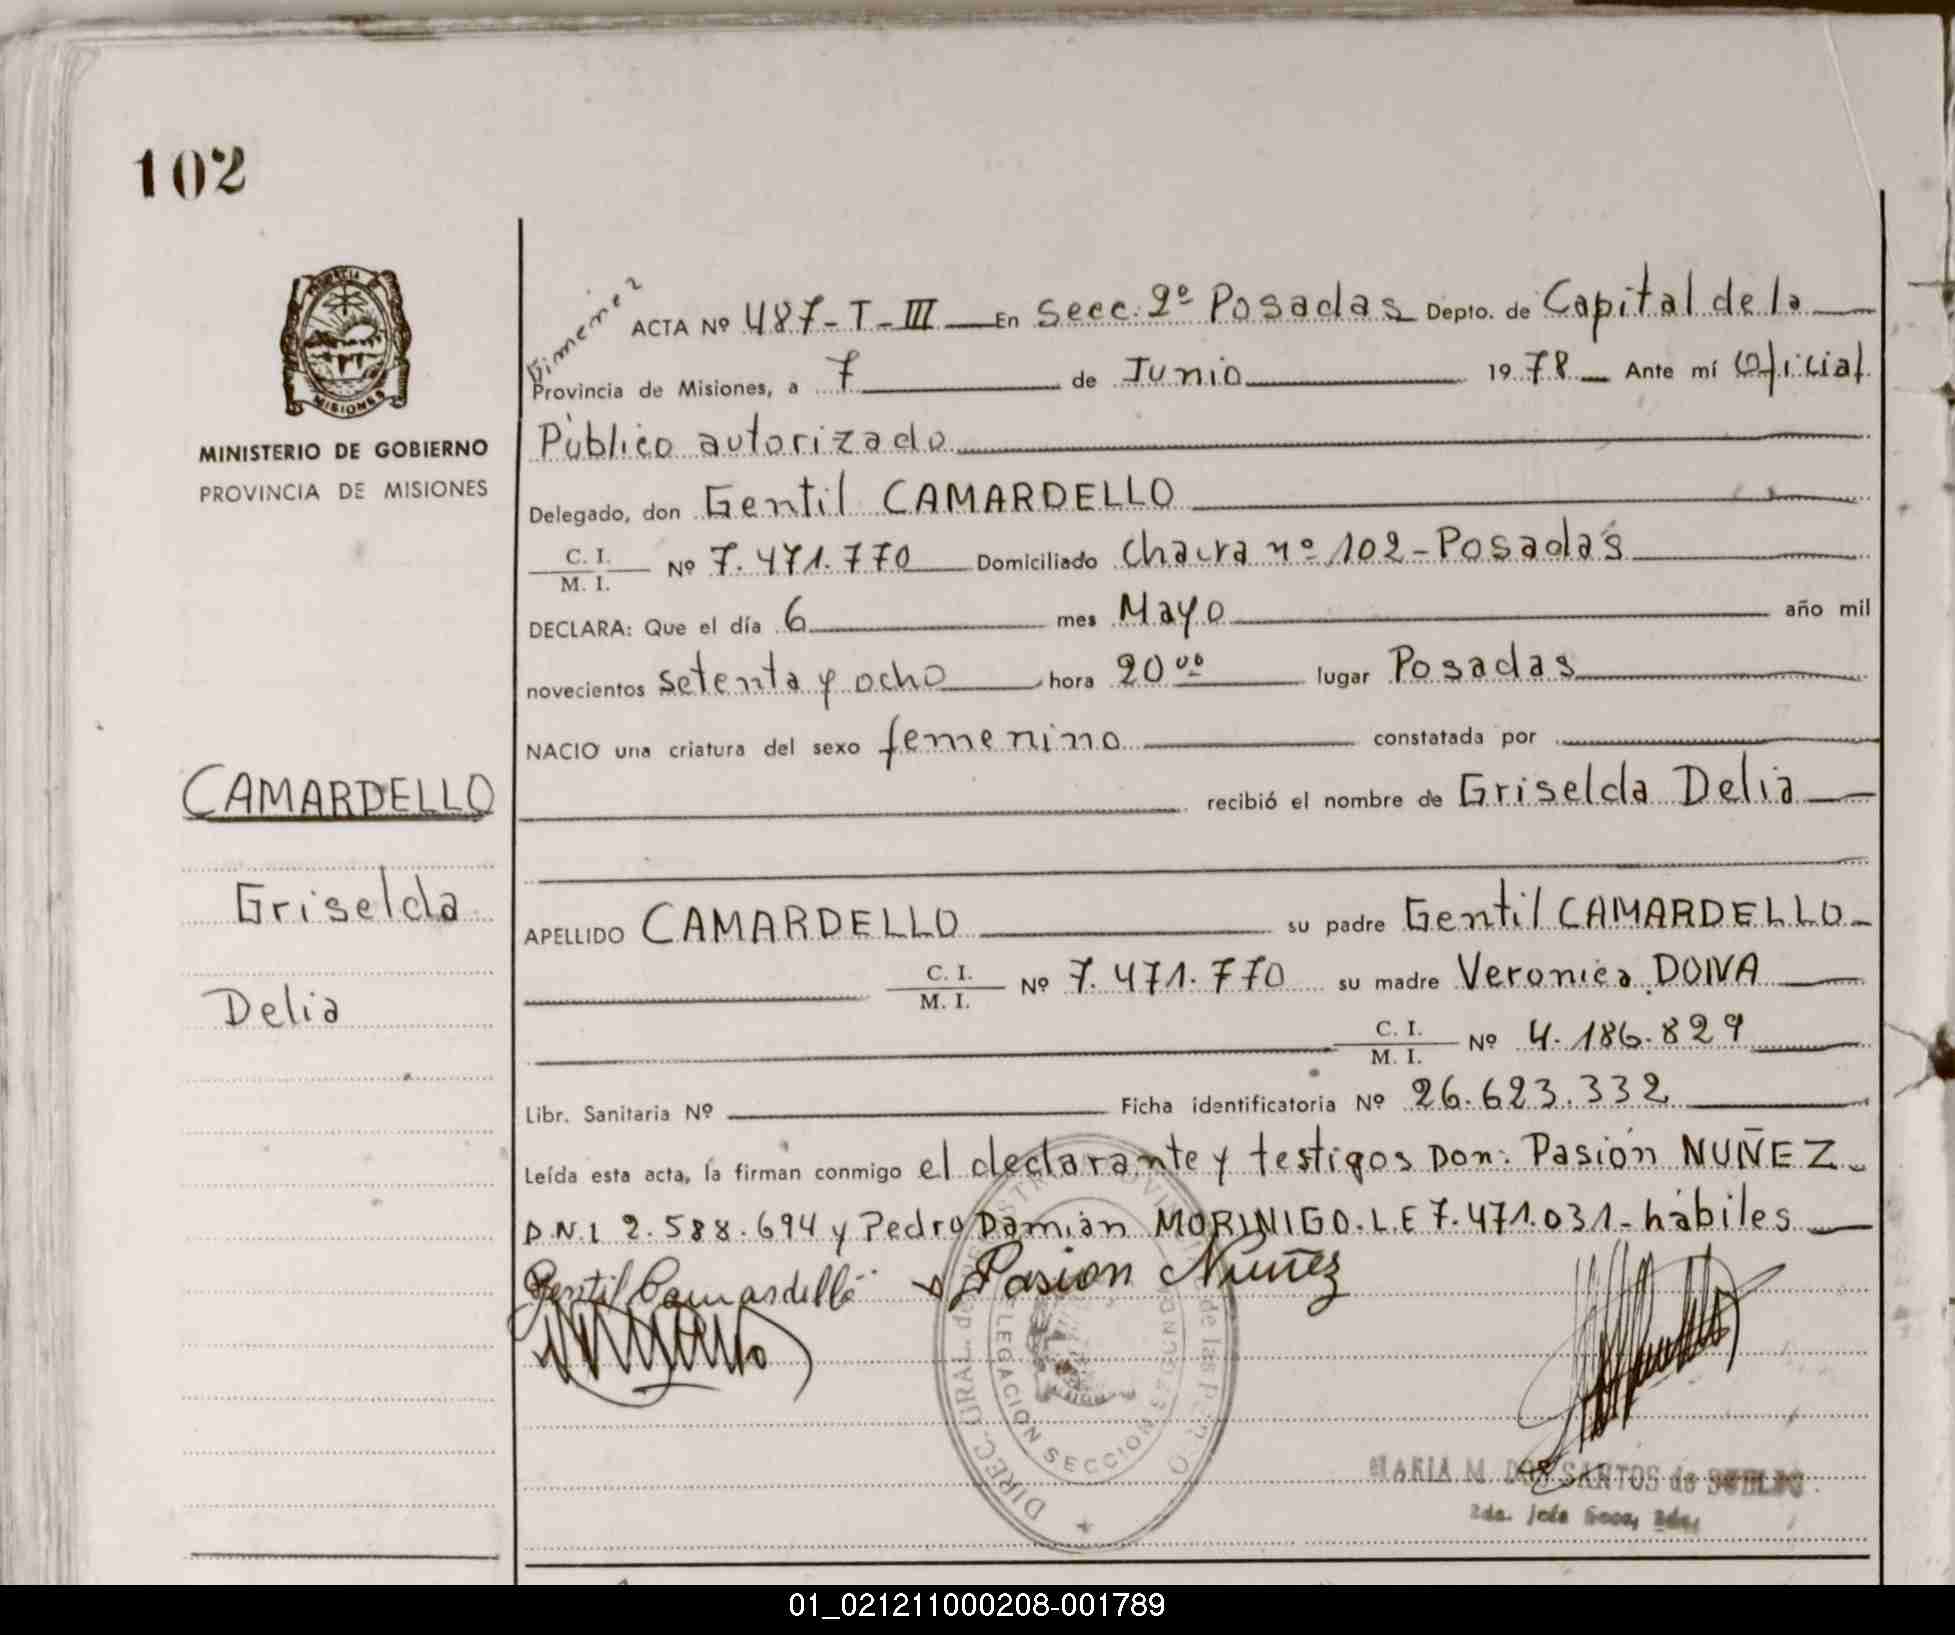 102
PROVINCIA
MISIONES
MINISTERIO DE GOBIERNO
PROVINCIA DE MISIONES
CAMARDELLO
Griselda
Delia
Gimenez
ACTA Nº 487-T-III En Secc. 2º Posadas Depto. de Capital de la
Provincia de Misiones, a 7 de Junio 1978 Ante mí Oficial
Público autorizado
Delegado, don Gentil CAMARDELLO
C. I.
M. I.
Nº 7.471.770 Domiciliado Chacra nº 102-Posadas
DECLARA: Que el día 6 mes Mayo año mil
novecientos setenta y ocho hora 20 00 lugar Posadas
NACIO una criatura del sexo femenino constatada por
recibió el nombre de Griselda Delia
APELLIDO CAMARDELLO su padre Gentil CAMARDELLO
C. I.
M. I.
Nº 7.471.770 su madre Veronica DOIVA
C. I.
M. I.
Nº 4.186.829
Libr. Sanitaria Nº Ficha identificatoria Nº 26.623.332
Leída esta acta, la firman conmigo el declarante y testigos Don: Pasión NUÑEZ
D.N.I 2.588.694 y Pedro Damián MORINIGO. L.E 7.471.031-hábiles
Gentil Camardello Pasion Nuñez
DIREC. GRAL. de las
DELEGACION SECCION SEGUNDA
MARIA M. DOS SANTOS de
2da. Jefe Secc. 2da.
01_021211000208-001789